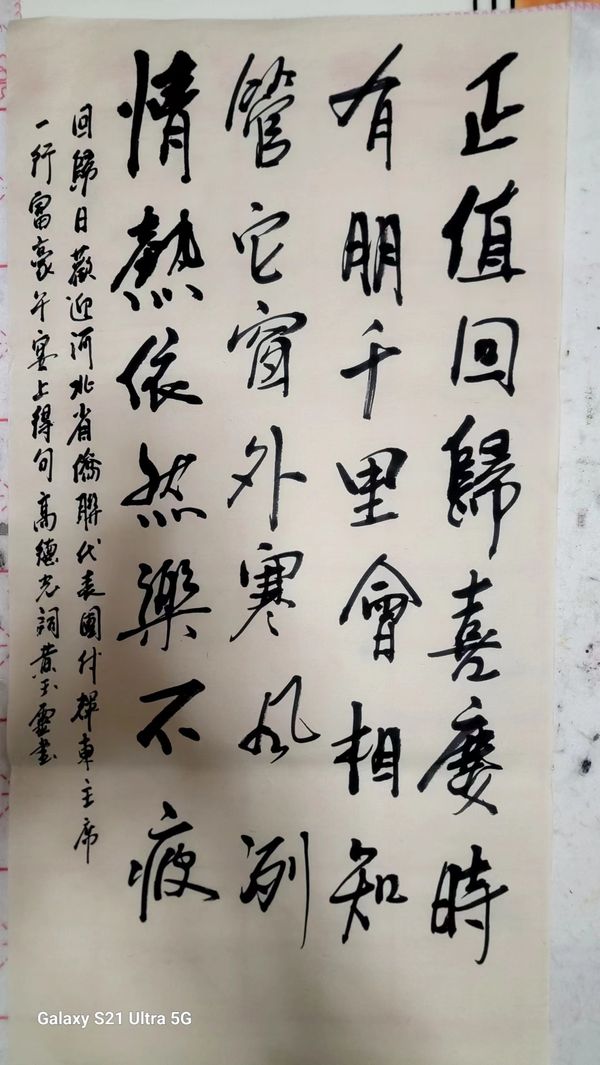 正值回歸喜慶時
有朋千里會相知
管它窗外寒風冽
情熱依然樂不疲
回歸日歡迎河北省僑聯代表團付輝東主席
一行富豪午宴上得句高德光詞黃玉靈書
Galaxy S21 Ultra 5G